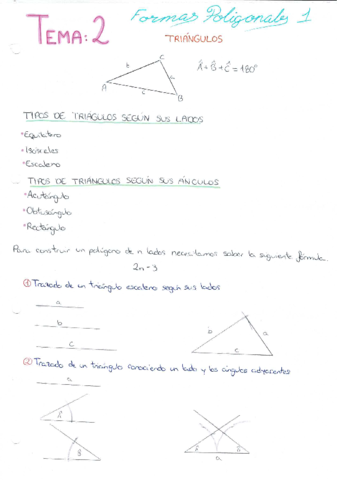 Formas Poligonales 1
TEMA: 2
TRIÁNGULOS
C
b
a
A
c
B
Â + B̂ + Ĉ = 180°
TIPOS DE TRIÁGULOS SEGÚN SUS LADOS
• Equilátero
• Isósceles
• Escaleno
TIPOS DE TRIÁNGULOS SEGÚN SUS ÁNGULOS
• Acutángulo
• Obtusángulo
• Rectángulo
Para construir un polígono de n lados necesitamos saber la siguiente fórmula
2n - 3
① Trazado de un triángulo escaleno según sus lados
a
b
c
b
a
c
② Trazado de un triángulo conociendo un lado y los ángulos adyacentes
a
Â
B
a